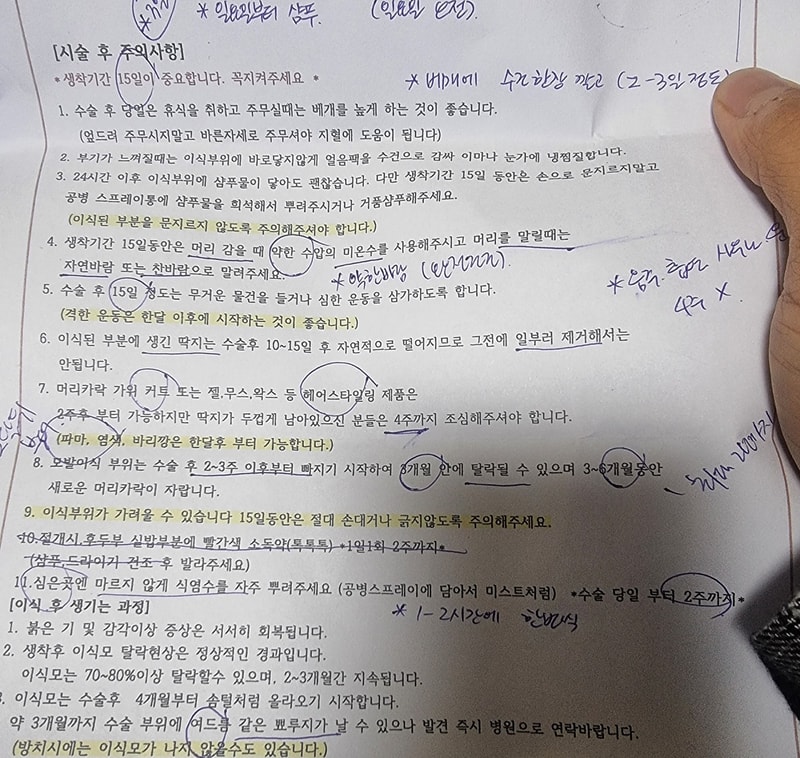 * 일요일부터 샴푸. (일요일 오전)
[시술 후 주의사항]
*생착기간 15일이 중요합니다. 꼭지켜주세요 *
* 베개에 수건한장 깔고 (2-3일 정도)
1. 수술 후 당일은 휴식을 취하고 주무실때는 베개를 높게 하는 것이 좋습니다.
(엎드려 주무시지말고 바른자세로 주무셔야 지혈에 도움이 됩니다)
2. 부기가 느껴질때는 이식부위에 바로닿지않게 얼음팩을 수건으로 감싸 이마나 눈가에 냉찜질합니다.
3. 24시간 이후 이식부위에 샴푸물이 닿아도 괜찮습니다. 다만 생착기간 15일 동안은 손으로 문지르지말고
공병 스프레이통에 샴푸물을 희석해서 뿌려주시거나 거품샴푸해주세요.
(이식된 부분을 문지르지 않도록 주의해주셔야 합니다.)
4. 생착기간 15일동안은 머리 감을 때 약한 수압의 미온수를 사용해주시고 머리를 말릴때는
자연바람 또는 찬바람으로 말려주세요.
* 약한바람 (완전건조).
* 음주. 흡연 사우나.
4주 X
5. 수술 후 15일 정도는 무거운 물건을 들거나 심한 운동을 삼가하도록 합니다.
(격한 운동은 한달 이후에 시작하는 것이 좋습니다.)
6. 이식된 부분에 생긴 딱지는 수술후 10~15일 후 자연적으로 떨어지므로 그전에 일부러 제거해서는
안됩니다.
7. 머리카락 가위 커트 또는 젤,무스,왁스 등 헤어스타일링 제품은
2주후 부터 가능하지만 딱지가 두껍게 남아있으진 분들은 4주까지 조심해주셔야 합니다.
(파마, 염색, 바리깡은 한달후 부터 가능합니다.)
8. 모발이식 부위는 수술 후 2~3주 이후부터 빠지기 시작하여 3개월 안에 탈락될 수 있으며 3~6개월동안
새로운 머리카락이 자랍니다.
9. 이식부위가 가려울 수 있습니다 15일동안은 절대 손대거나 긁지않도록 주의해주세요.
10.절개시,후두부 실밥부분에 빨간색 소독약(톡톡톡) *1일1회 2주까지*
(샴푸,드라이기 건조 후 발라주세요)
11.심은곳엔 마르지 않게 식염수를 자주 뿌려주세요 (공병스프레이에 담아서 미스트처럼) *수술 당일 부터 2주까지*
* 1-2시간에 한번씩
[이식 후 생기는 과정]
1. 붉은 기 및 감각이상 증상은 서서히 회복됩니다.
2. 생착후 이식모 탈락현상은 정상적인 경과입니다.
이식모는 70~80%이상 탈락할수 있으며, 2~3개월간 지속됩니다.
3. 이식모는 수술후 4개월부터 솜털처럼 올라오기 시작합니다.
약 3개월까지 수술 부위에 여드름 같은 뾰루지가 날 수 있으나 발견 즉시 병원으로 연락바랍니다.
(방치시에는 이식모가 나지 않을수도 있습니다.)